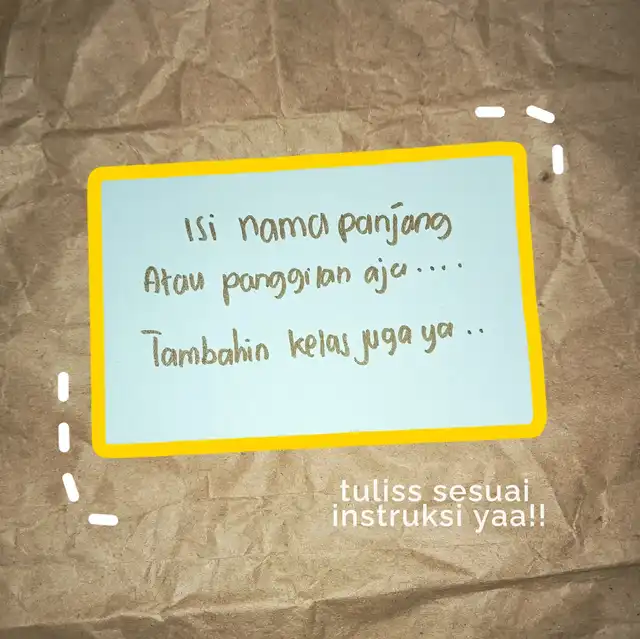 Isi nama panjang
Atau panggilan aja....
Tambahin kelas juga ya..
tuliss sesuai
instruksi yaa!!